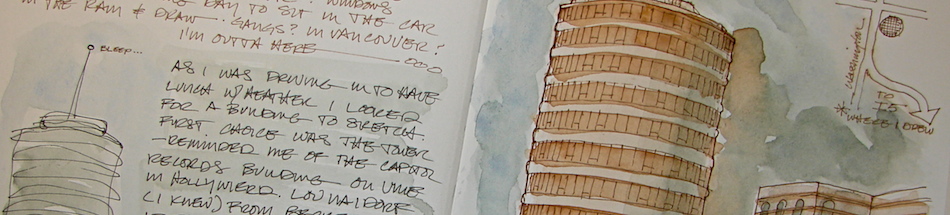 DAY TO SIT IN THE CAR
IN THE RAIN & DRAW. GANGS? IN VANCOUVER?
I'M OUTTA HERE
BLEEP...
AS I WAS DRIVING IN TO HAVE
LUNCH W/HEATHER I LOOKED
FOR A BUILDING TO SKETCH.
FIRST CHOICE WAS THE TOWER
-REMINDED ME OF THE CAPITOL
RECORDS BUILDING - ON VINE
IN HOLLYWIERD.
(I KNEW) FROM
WASHINGTON
TO
I5
*WHERE I DREW